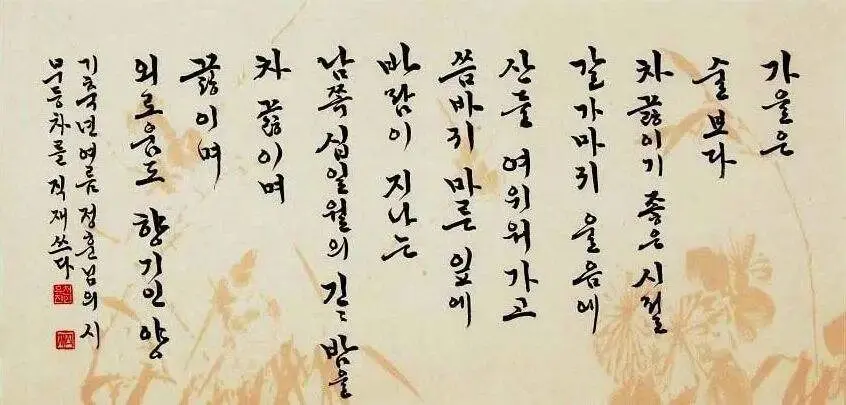 가을은
술 보다
차 끓이기 좋은 시절
갈가마귀 울음에
산들 여위워 가고
씀바귀 마른 잎에
바람이 지나는
남쪽 십일월의 긴긴 밤을
차 끓이며
끓이며
외로움도 향기인 양
기축년 여름 정훈님의 시
무등차를 직재 쓰다